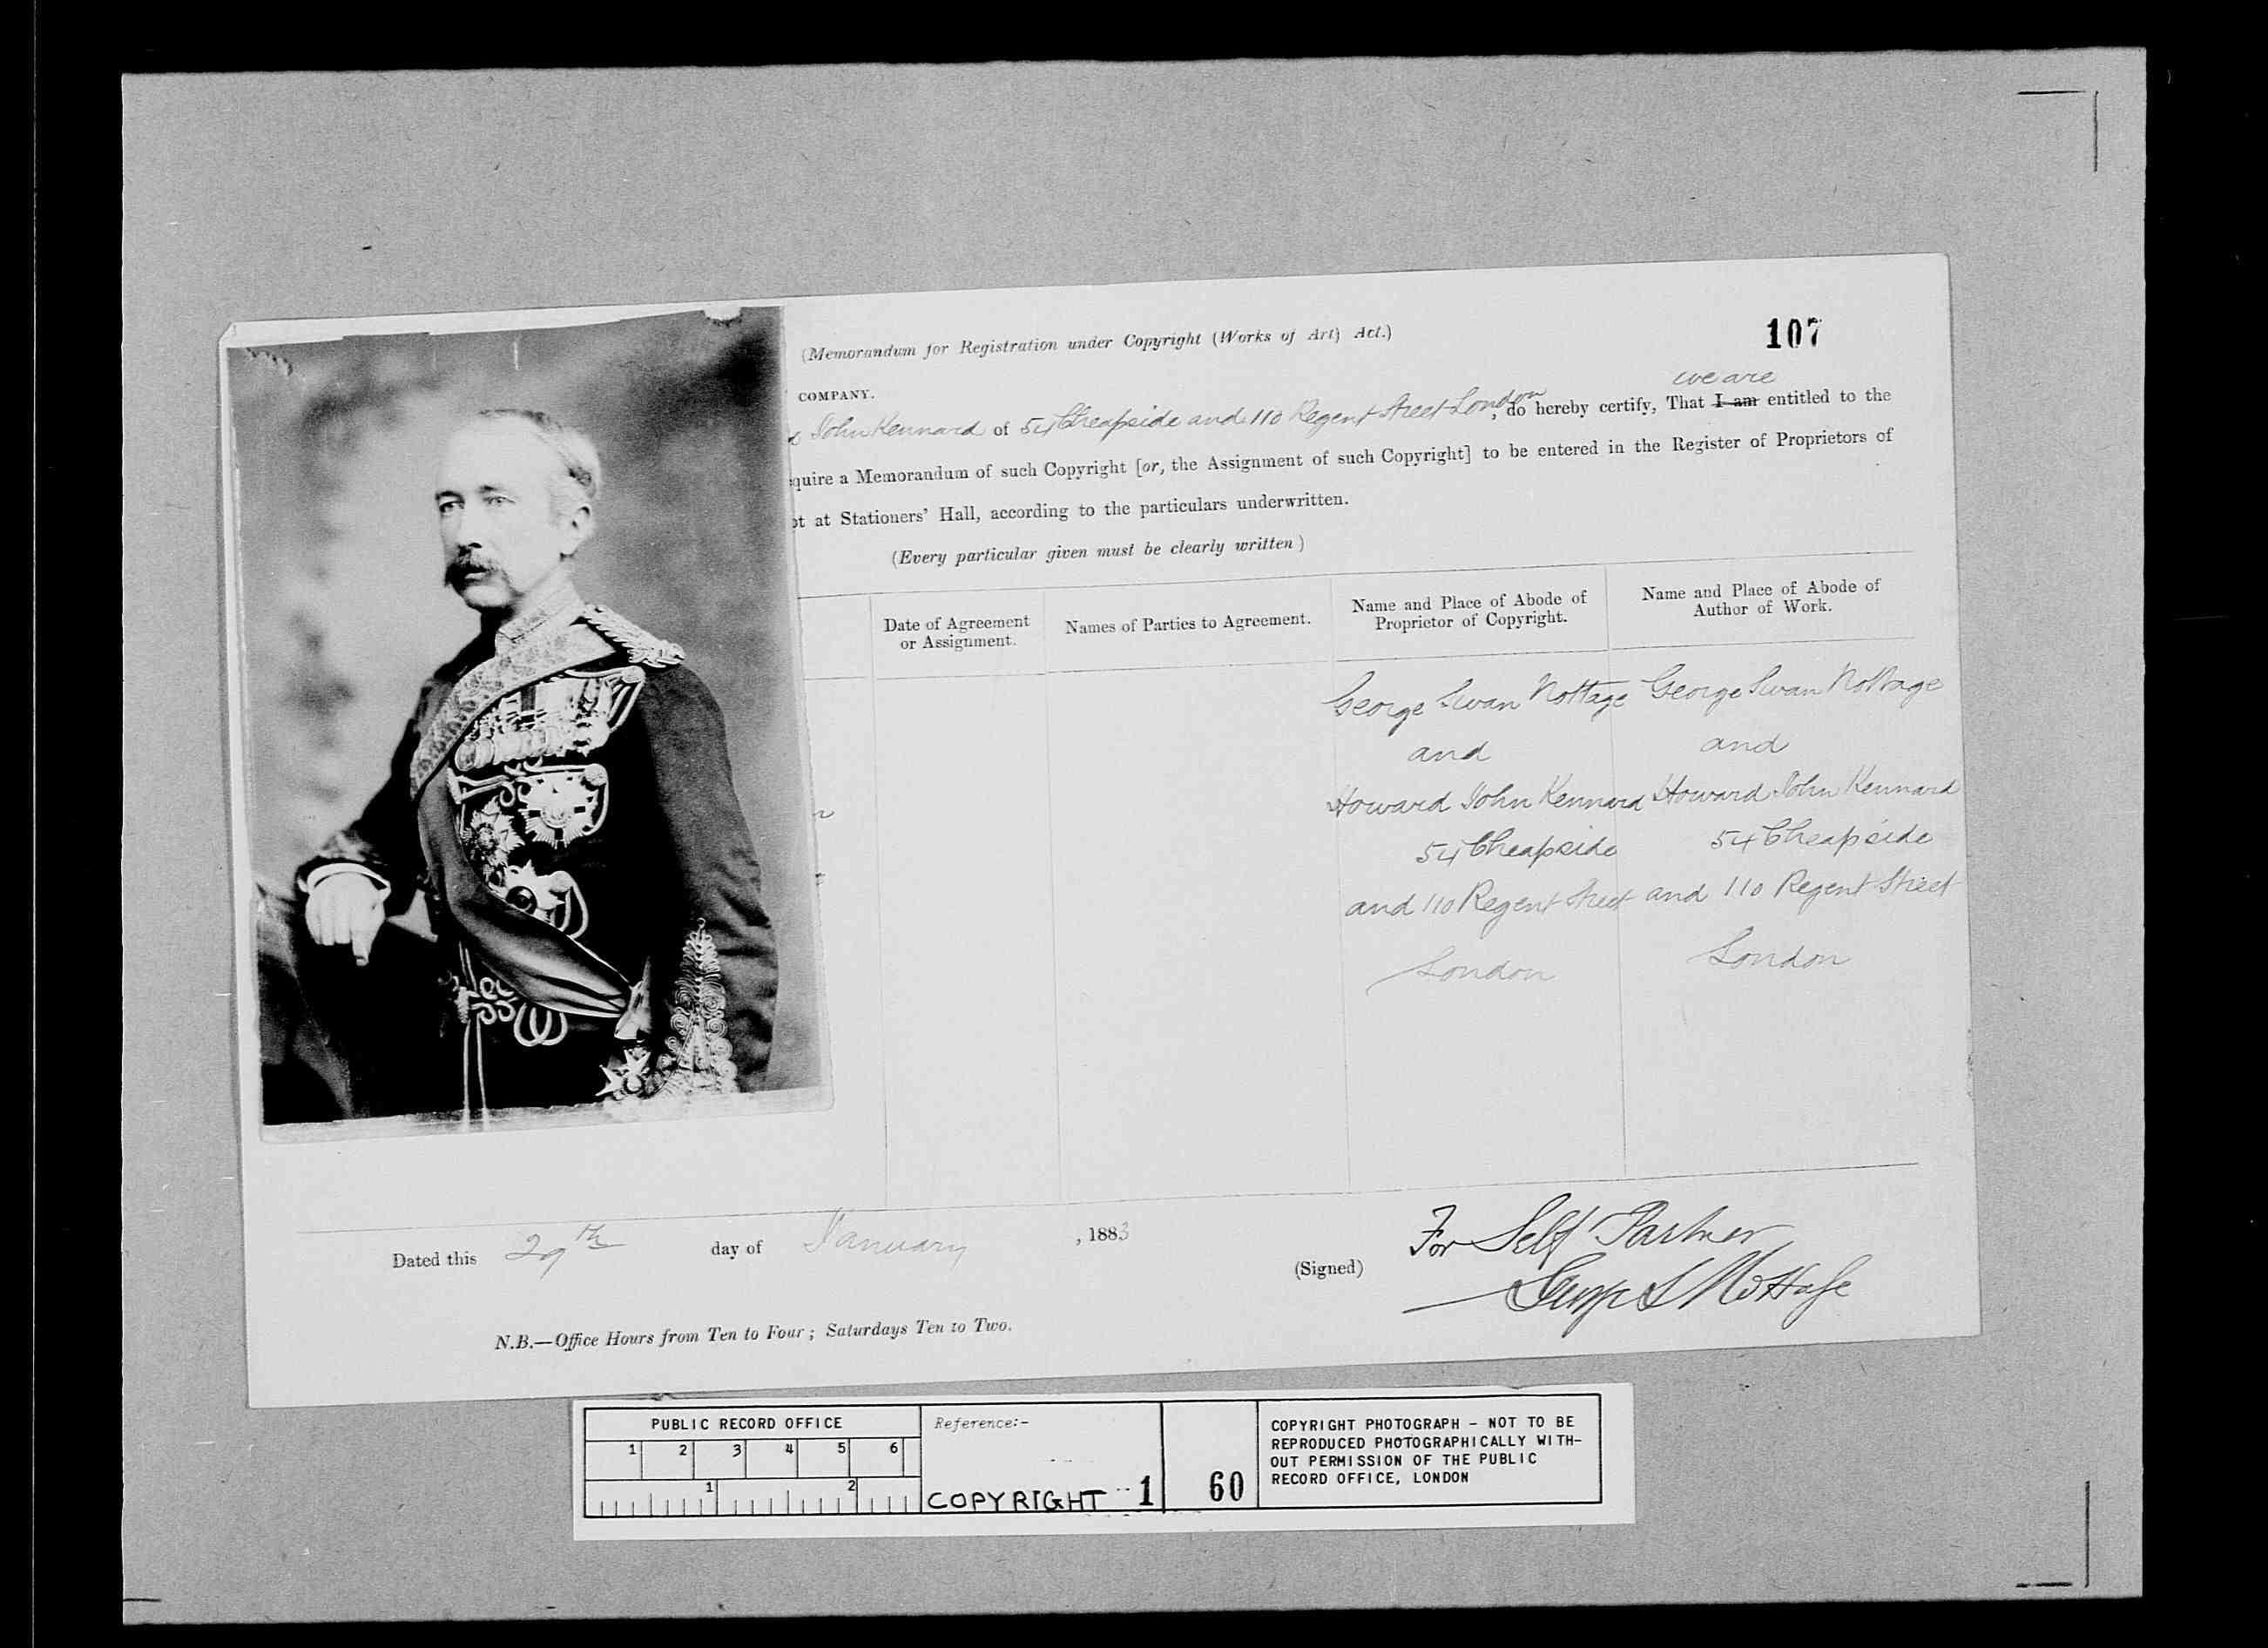 107
(Memorandum for Registration under Copyright (Works of Art) Act.)
COMPANY.
we are
John Kennard of 54 Cheapside and 110 Regent Street London, do hereby certify, That I am entitled to the
quire a Memorandum of such Copyright [or, the Assignment of such Copyright] to be entered in the Register of Proprietors of
at Stationers' Hall, according to the particulars underwritten.
(Every particular given must be clearly written)
Date of Agreement
or Assignment.
Names of Parties to Agreement.
Name and Place of Abode of
Proprietor of Copyright.
Name and Place of Abode of
Author of Work.
George Swan Nottage
and
Howard John Kennard
54 Cheapside
and 110 Regent Street
London
George Swan Nottage
and
Howard John Kennard
54 Cheapside
and 110 Regent Street
London
Dated this 29th day of January, 1883
(Signed)
For Self Partner
George S Nottage
N.B.—Office Hours from Ten to Four; Saturdays Ten to Two.
PUBLIC RECORD OFFICE
1 2 3 4 5 6
1 2
Reference:-
COPYRIGHT 1
60
COPYRIGHT PHOTOGRAPH - NOT TO BE
REPRODUCED PHOTOGRAPHICALLY WITH-
OUT PERMISSION OF THE PUBLIC
RECORD OFFICE, LONDON